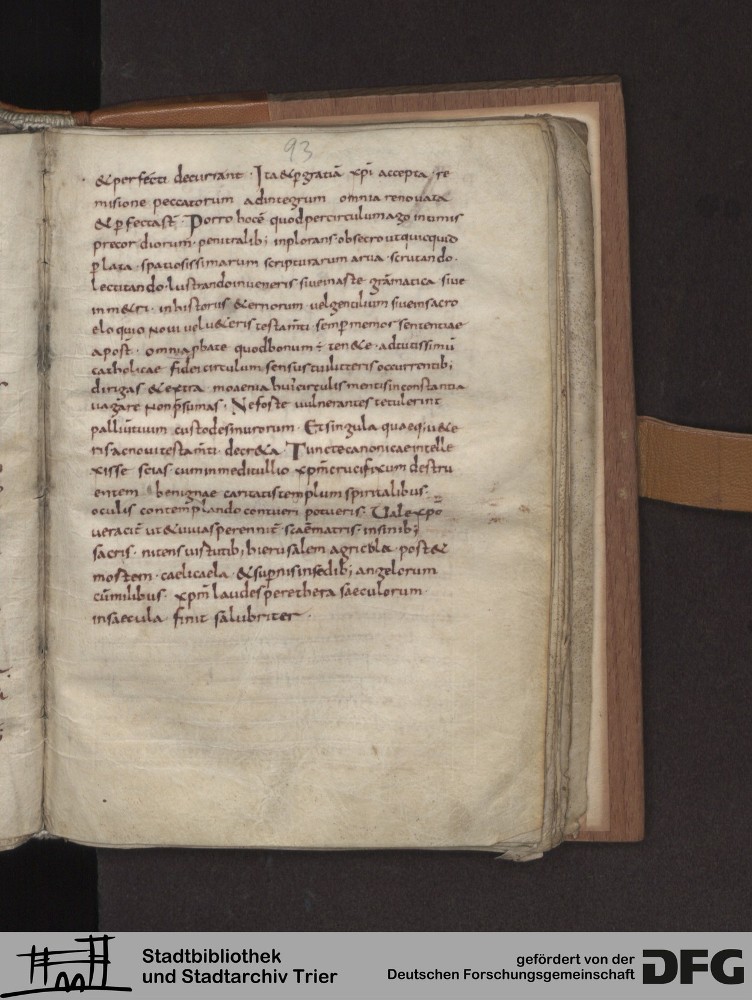 93
& perfecti decurrant · Ita & p gratiā xpi accepta · re
misione peccatorum ad integrum omnia renovata
& pfecta st̄ · Porro hoc ē quod per circulum ago intimis
precor diorum · penitralib; inplorans · obsecro ut quicquid
plata · spatiosissimarum scripturarum arva · scrutando ·
lectitando · lustrando inveneris sive in aste grāmatica sive
in m&ri · in historiis &ernorum · vel gentilium sive in sacro
eloquio novi vel v&eris testam̄ti · semp memor sententiae
apost̄ · omnia pbate quod bonum ÷ ten&e · ad tutissimū
catholicae fidei circulum sensus tui litteris occurrentib;
dirigas & extra moaenia hui circulis mentis inconstantia
vagare non p̄sumas · Ne foste vulnerantes te tulerint
pallium tuum custodes murorum · Et singula quaeq; v&e
ris ac novi testam̄ti · decr&a · Tunc te canonicae intelle
xisse scias cum in meditullio xpm̄ crucifixum destru
entem benignae caritatis templum spiritalibus ·
oculis contemplando contueri potueris · Vale xp̄o
veracit̄ ut & vivas perennit̄ · scāe matris · in sinib;
sacris · nitens vistutib; hierusalem agricola · post &
mostem · caelicaela · & supnis in sedib; angelorum
cū milibus · xpm̄ laudes per ethera saeculorum ·
in saecula · finit salubriter ·
Stadtbibliothek
und Stadtarchiv Trier
gefördert von der
Deutschen Forschungsgemeinschaft
DFG